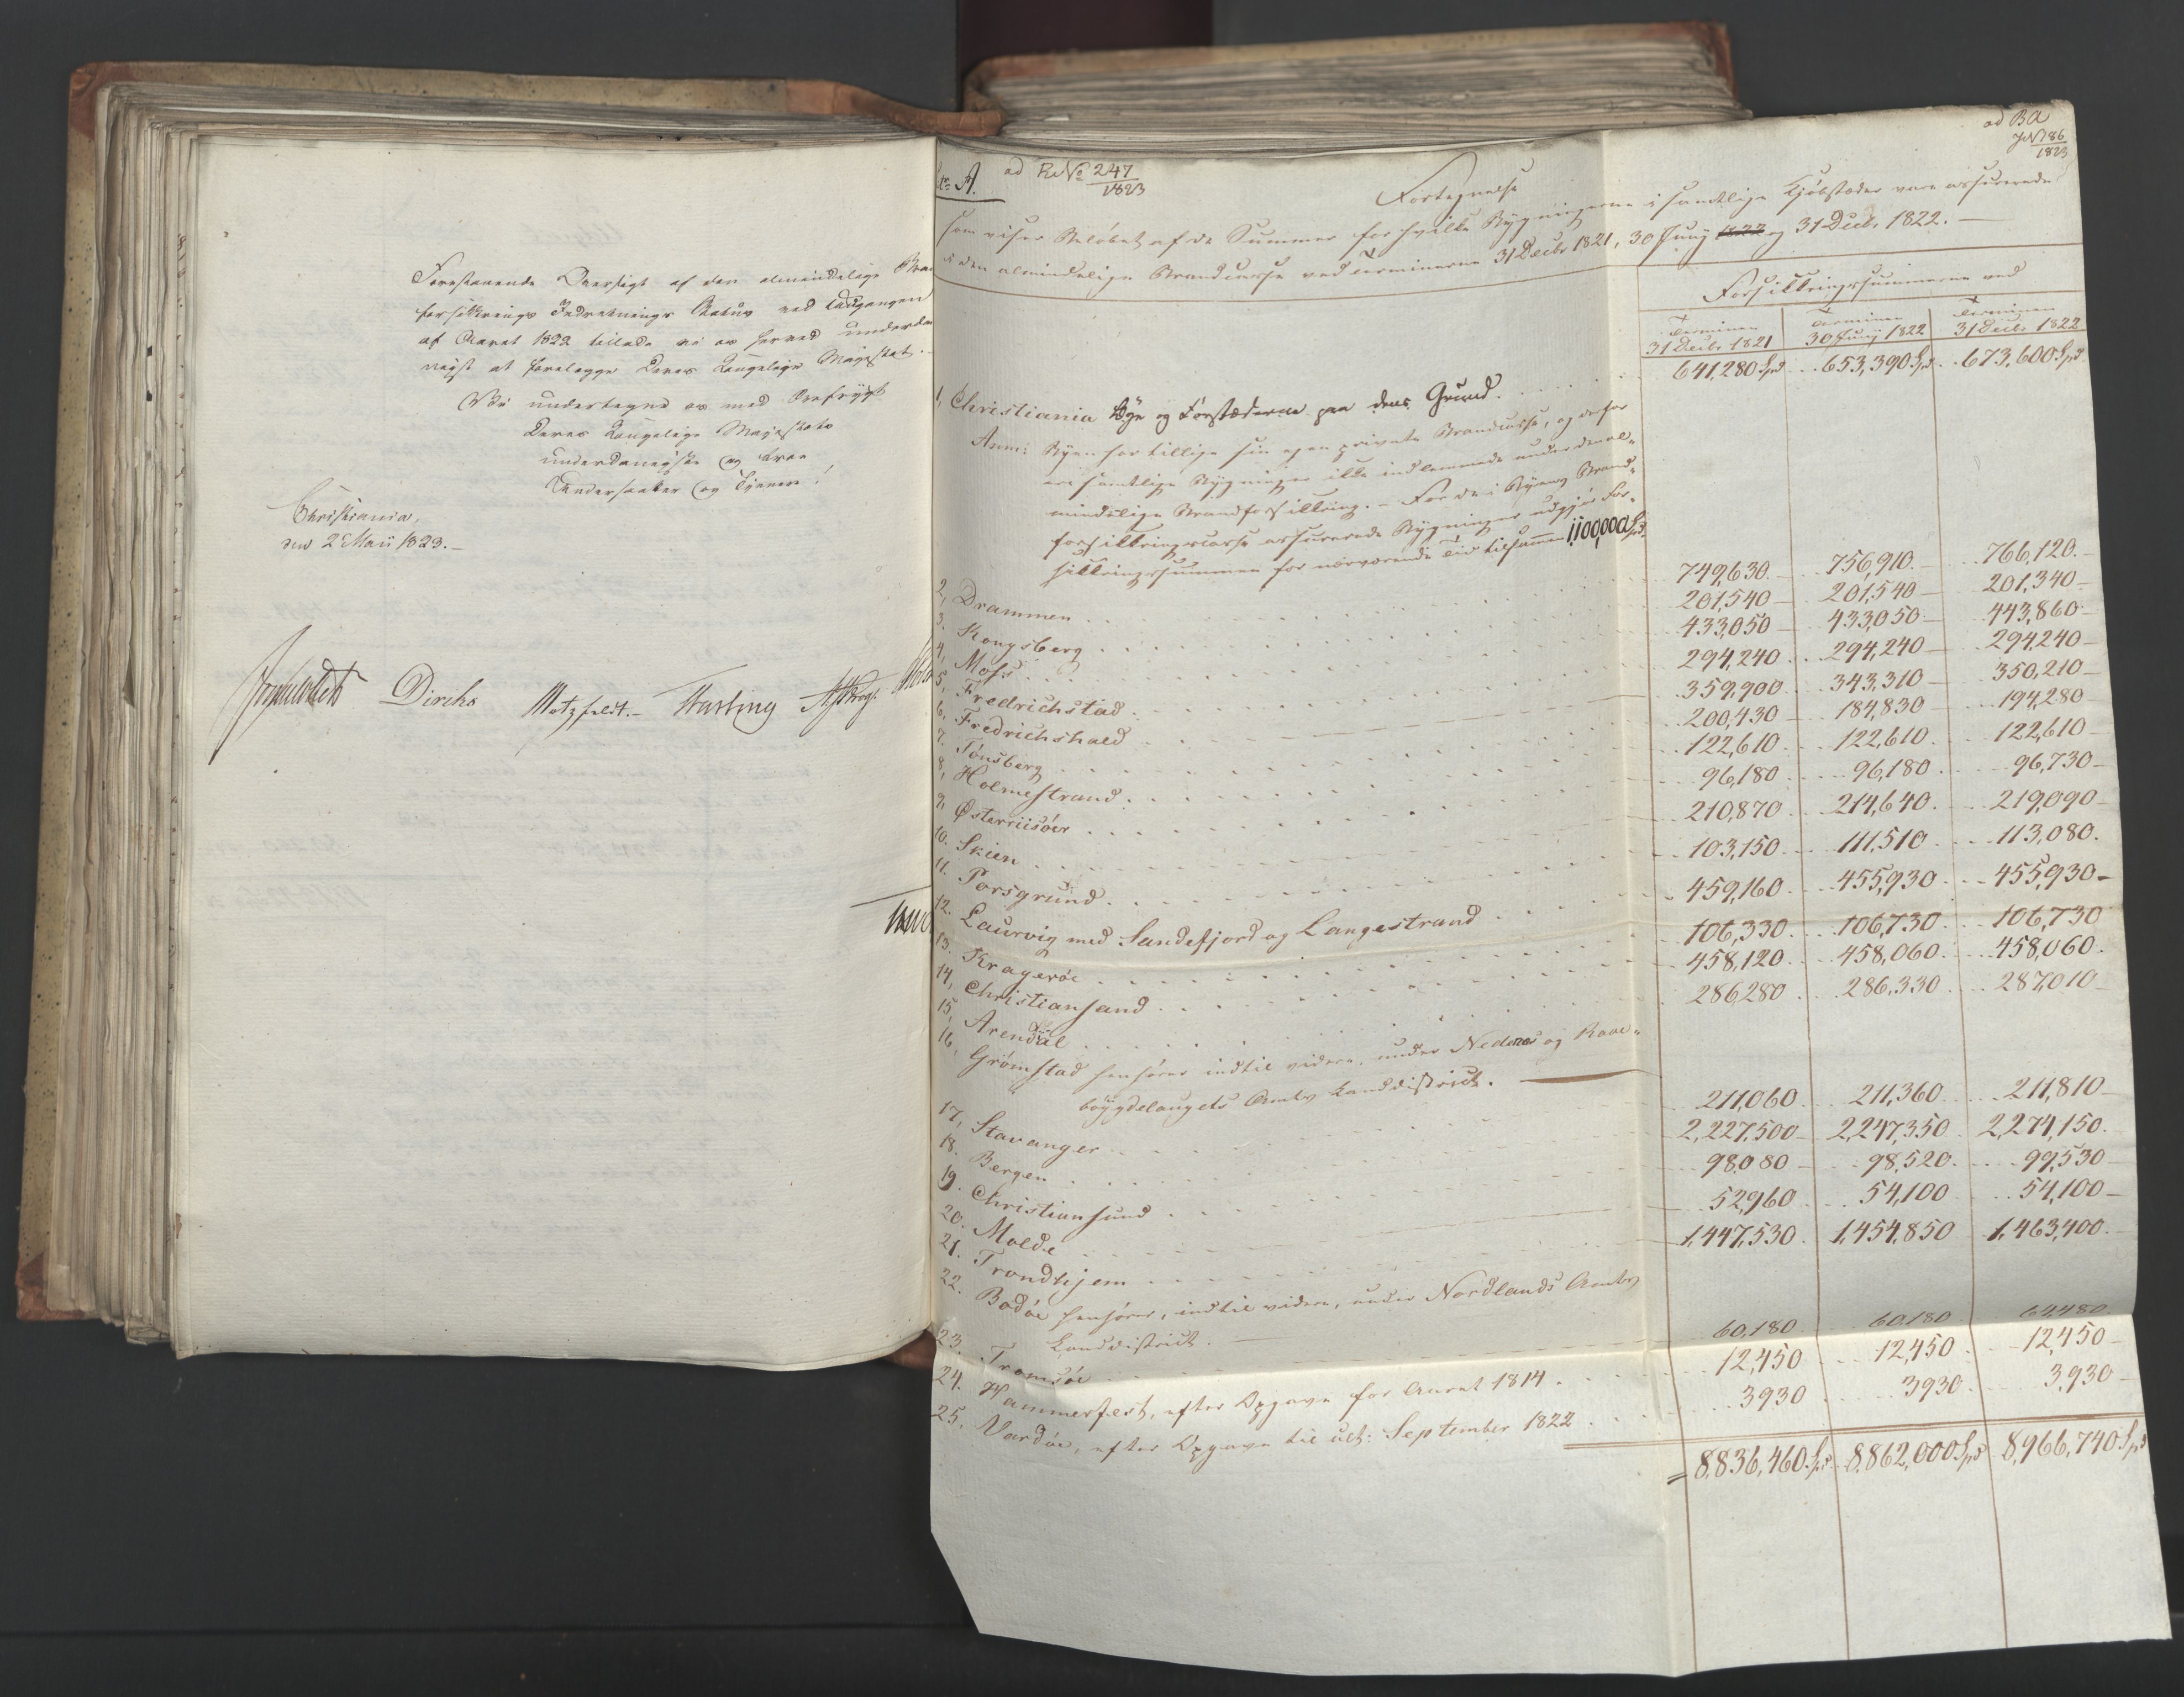 Forestaaende Oversigt af den almindelige Bran
forsikrings Indretnings Status ved Udgangen
af Aaret 1822 tillade vi os herved underda
nigst at forelægge Deres Kongelige Majestæt.
Vi undertegne os med Ærefrygt
Deres Kongelige Majestæts
underdanigste og troe
Undersaatter og Tjenere!
Christiania,
den 2 Maii 1823.
Diriks Motzfeldt. Fasting
A. ad RNo 247/1823
ad BA
JN 186/1823
Fortegnelse
som viser Beløbet af de Summer for hvilke Bygningerne i samtlige Kjøbstæder vare assurerede
i den almindelige Brandcasse ved Terminerne 31 Decbr 1821, 30 Juny 1822 og 31 Decbr 1822.
Forsikkringssummerne ved
Terminen 31 Decbr 1821 Terminen 30 Juny 1822 Terminen 31 Decbr 1822
1, Christiania Bye og Forstæderne paa dens Grund. 641,280 Spd 653,390 Spd 673,600 Spd
Anm: Byen har tillige sin egen private Brandcasse, og derfor
ere samtlige Bygninger ikke indlemmede under den al-
mindelige Brandforsikkring. For de i Byens Brand-
forsikkringscasse assurerede Bygninger udgjør For-
sikkringssummen for nærværende Tid tilsammen 1,100,000 Spd
2, Drammen 749,630 756,910 766,120
3. Kongsberg 201,540 201,540 201,340
4, Moss 433,050 433,050 443,860
5, Fredrichstad 294,240 294,240 294,240
6, Fredrichshald 359,900 343,310 350,210
7. Tønsberg 200,430 184,830 194,280
8, Holmestrand 122,610 122,610 122,610
9, Østerriisøer 96,180 96,180 96,730
10. Skien 210,870 214,640 219,090
11. Porsgrund 103,150 111,510 113,080
12. Laurvig med Sandefjord og Langestrand 459,160 455,930 455,930
13. Kragerøe 106,330 106,730 106,730
14, Christiansand 458,120 458,060 458,060
15, Arendal 286,280 286,330 287,010
16, Grømstad henhører indtil videre, under Nedenes og Raae-
bøygdelaugets Amts Landdistrict.
17, Stavanger 211,060 211,360 211,810
18. Bergen 2,227,500 2,247,350 2,274,150
19. Christiansund 98,080 98,520 99,530
20. Molde 52,960 54,100 54,100
21. Trondhjem 1,447,530 1,454,850 1,463,400
22. Bodøe henhører, indtil videre, under Nordlands Amts
Landdistrict.
23. Tromsöe 60,180 60,180 64,480
24. Hammerfest, efter Opgave for Aaret 1814 12,450 12,450 12,450
25. Vardøe, efter Opgave til ult: September 1822 3930 3930 3,930
= 8,836,460 Spd 8,862,000 Spd 8,966,740 Spd